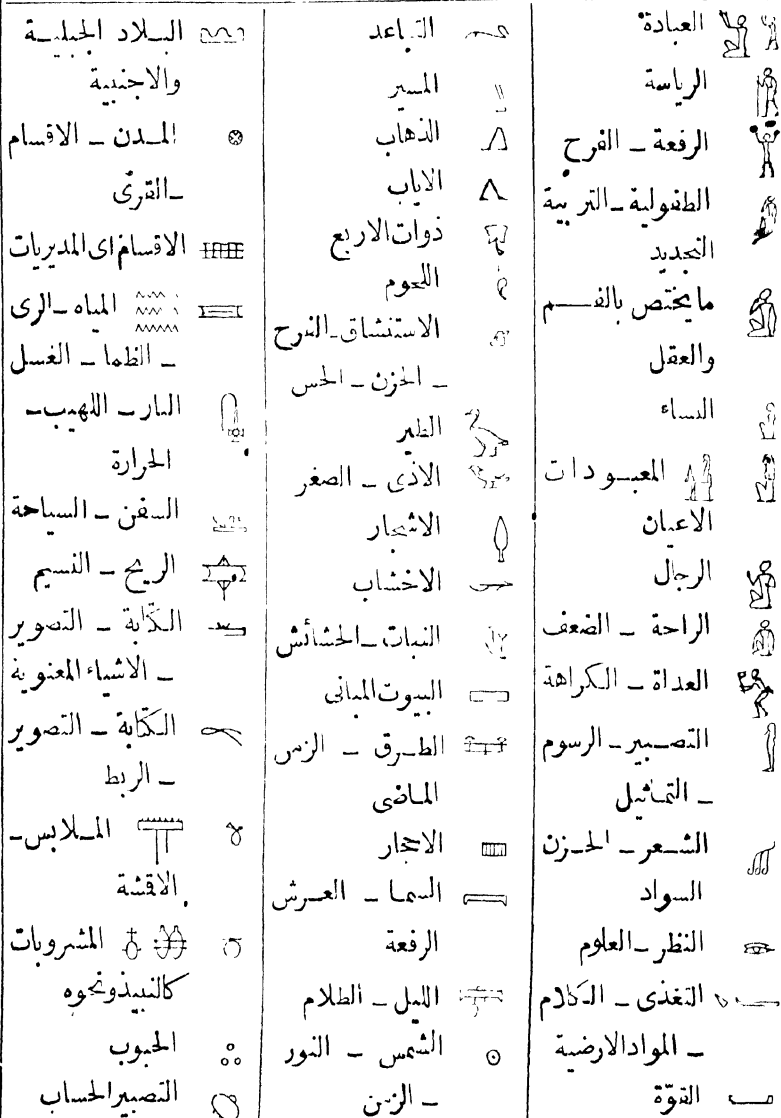 العبادة
الرياسة
الرفعة ـ الفرح
الطفولية ـ التربية
التجديد
ما يختص بالفــم
والعقل
النساء
المعبودات
الاعيان
الرجال
الراحة ـ الضعف
العداة ـ الكراهة
التصبير ـ الرسوم
ـ التماثيل
الشعر ـ الحزن
السواد
النظر ـ العلوم
التغذى ـ الكلام
ـ المواد الارضية
القوّة
التباعد
المسير
الذهاب
الاياب
ذوات الاربع
اللحوم
الاستنشاق ـ الفرح
ـ الحزن ـ الحس
الطير
الاذى ـ الصغر
الاشجار
الاخشاب
النبات ـ الحشائش
البيوت المبانى
الطرق ـ الزمن
الماضى
الاحجار
السما ـ العرش
الرفعة
الليل ـ الظلام
الشمس ـ النور
ـ الزمن
البلاد الجبلية
والاجنبية
المدن ـ الاقسام
ـ القرى
الاقسام اى المديريات
المياه ـ الرى
ـ الظما ـ الغسل
النار ـ اللهيب ـ
الحرارة
السفن ـ السياحة
الريح ـ النسيم
الكتابة ـ التصوير
ـ الاشياء المعنوية
الكتابة ـ التصوير
ـ الربط
الملابس ـ
الاقشة
المشروبات
كالنبيذ ونحوه
الحبوب
التصبير الحساب